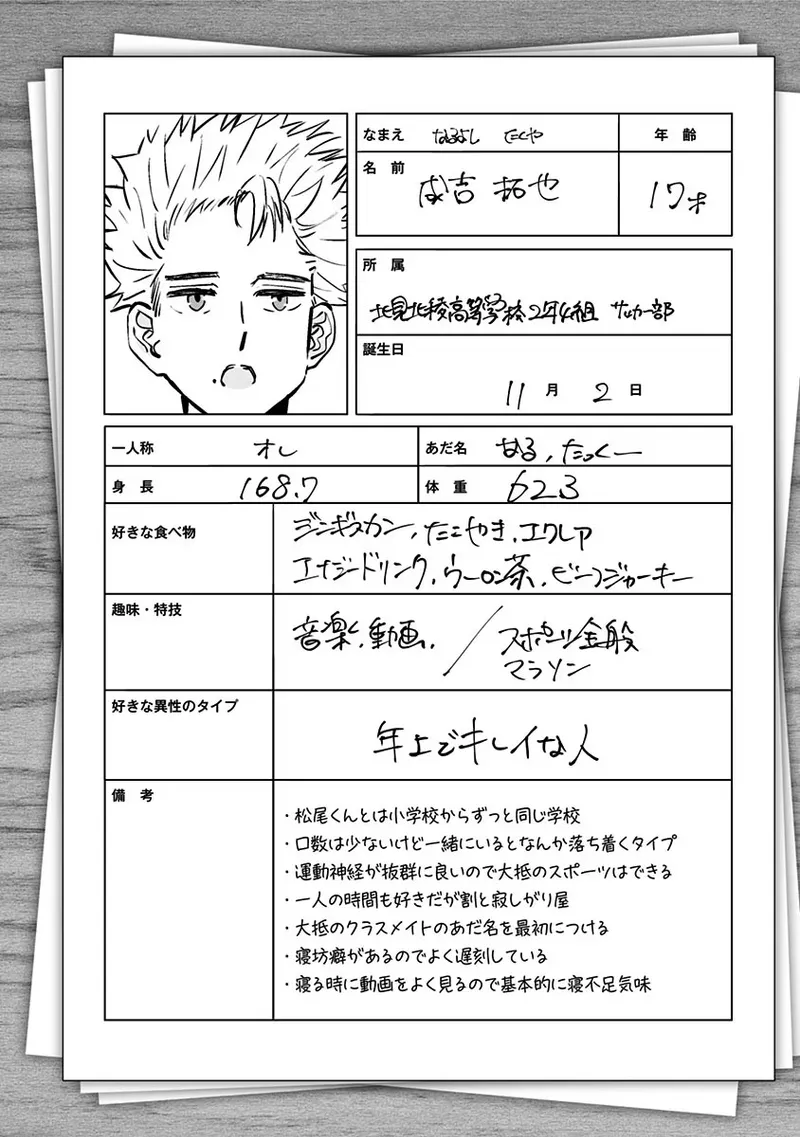 なまえ なるよし たくや
年齢
名前 成吉 拓也
17才
所属
北見北稜高等学校2年4組 サッカー部
誕生日
11月2日
一人称 オレ
あだ名 なる、たっくー
身長 168.7
体重 62.3
好きな食べ物
ジンギスカン、たこやき、エクレア
エナジードリンク、ウーロン茶、ビーフジャーキー
趣味・特技
音楽、動画、/スポーツ全般
マラソン
好きな異性のタイプ
年上でキレイな人
備考
・松尾くんとは小学校からずっと同じ学校
・口数は少ないけど一緒にいるとなんか落ち着くタイプ
・運動神経が抜群に良いので大抵のスポーツはできる
・一人の時間も好きだが割と寂しがり屋
・大抵のクラスメイトのあだ名を最初につける
・寝坊癖があるのでよく遅刻している
・寝る時に動画をよく見るので基本的に寝不足気味